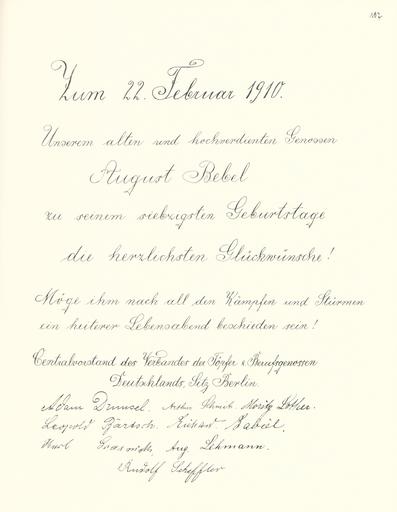 187
Zum 22. Februar 1910.
Unserem alten und hochverdienten Genossen
August Bebel
zu seinem siebzigsten Geburtstage
die herzlichsten Glückwünsche!
Möge ihm nach all den Kämpfen und Stürmen
ein heiterer Lebensabend beschieden sein!
Centralvorstand des Verbandes der Töpfer u. Berufsgenossen
Deutschlands, Sitz Berlin.
Adam Drunsel. Arthur Moritz
Leopold Bärtsch. Richard
Karl Aug. Lehmann.
Rudolf Scheffler